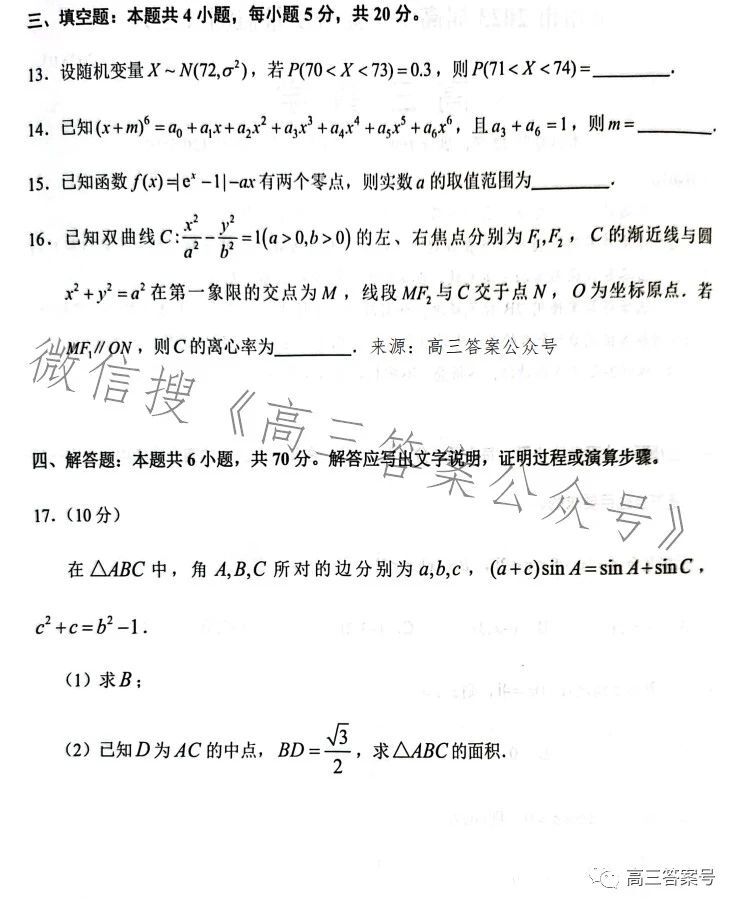 三、填空题：本题共 4 小题，每小题 5 分，共 20 分。
13. 设随机变量 X ~ N(72,σ²)，若 P(70 < X < 73) = 0.3，则 P(71 < X < 74) = ________.
14. 已知 (x+m)⁶ = a₀ + a₁x + a₂x² + a₃x³ + a₄x⁴ + a₅x⁵ + a₆x⁶，且 a₃ + a₆ = 1，则 m = ________.
15. 已知函数 f(x) =|eˣ −1|−ax 有两个零点，则实数 a 的取值范围为________.
16. 已知双曲线 C: x²/a² − y²/b² = 1(a > 0,b > 0) 的左、右焦点分别为 F₁,F₂， C 的渐近线与圆
x² + y² = a² 在第一象限的交点为 M ，线段 MF₂ 与 C 交于点 N ， O 为坐标原点. 若
MF₁ // ON ，则 C 的离心率为________. 来源：高三答案公众号
微信搜《高三答案公众号》
四、解答题：本题共 6 小题，共 70 分。解答应写出文字说明，证明过程或演算步骤。
17.（10 分）
在 △ABC 中，角 A,B,C 所对的边分别为 a,b,c ， (a+c)sin A = sin A+sin C ，
c² + c = b² −1.
（1）求 B；
（2）已知 D 为 AC 的中点， BD = √3/2 ，求 △ABC 的面积.
高三答案号